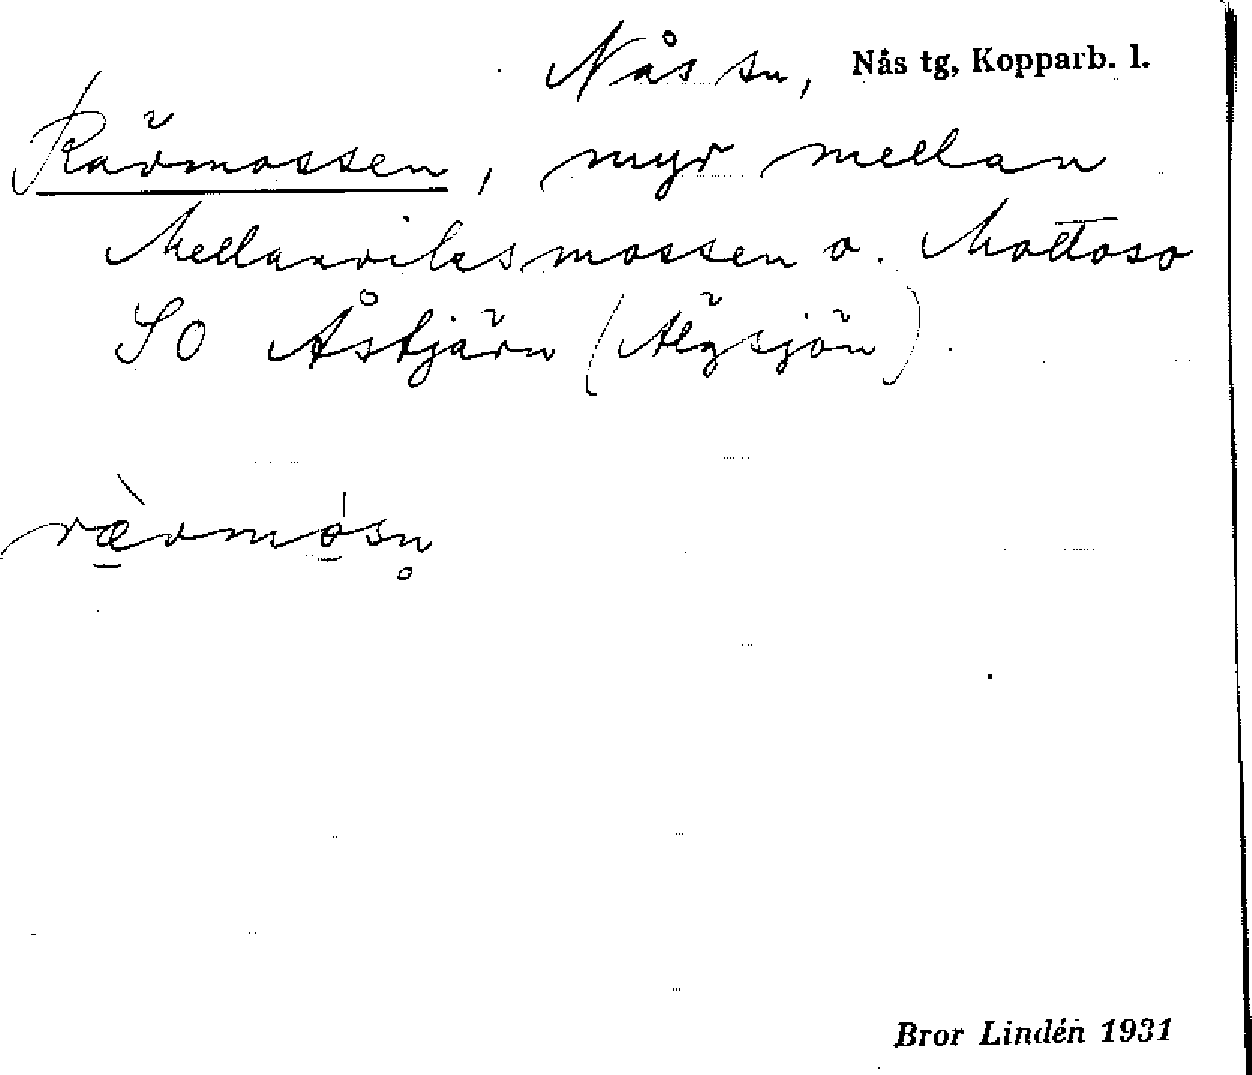 Nås sn, Nås tg, Kopparb. l.
Rävmossen, myr mellan
Mellanvilsmossen o. Mattoso
SO Åstjärn (Älgsjön).
rævmosn̥
Bror Lindén 1931